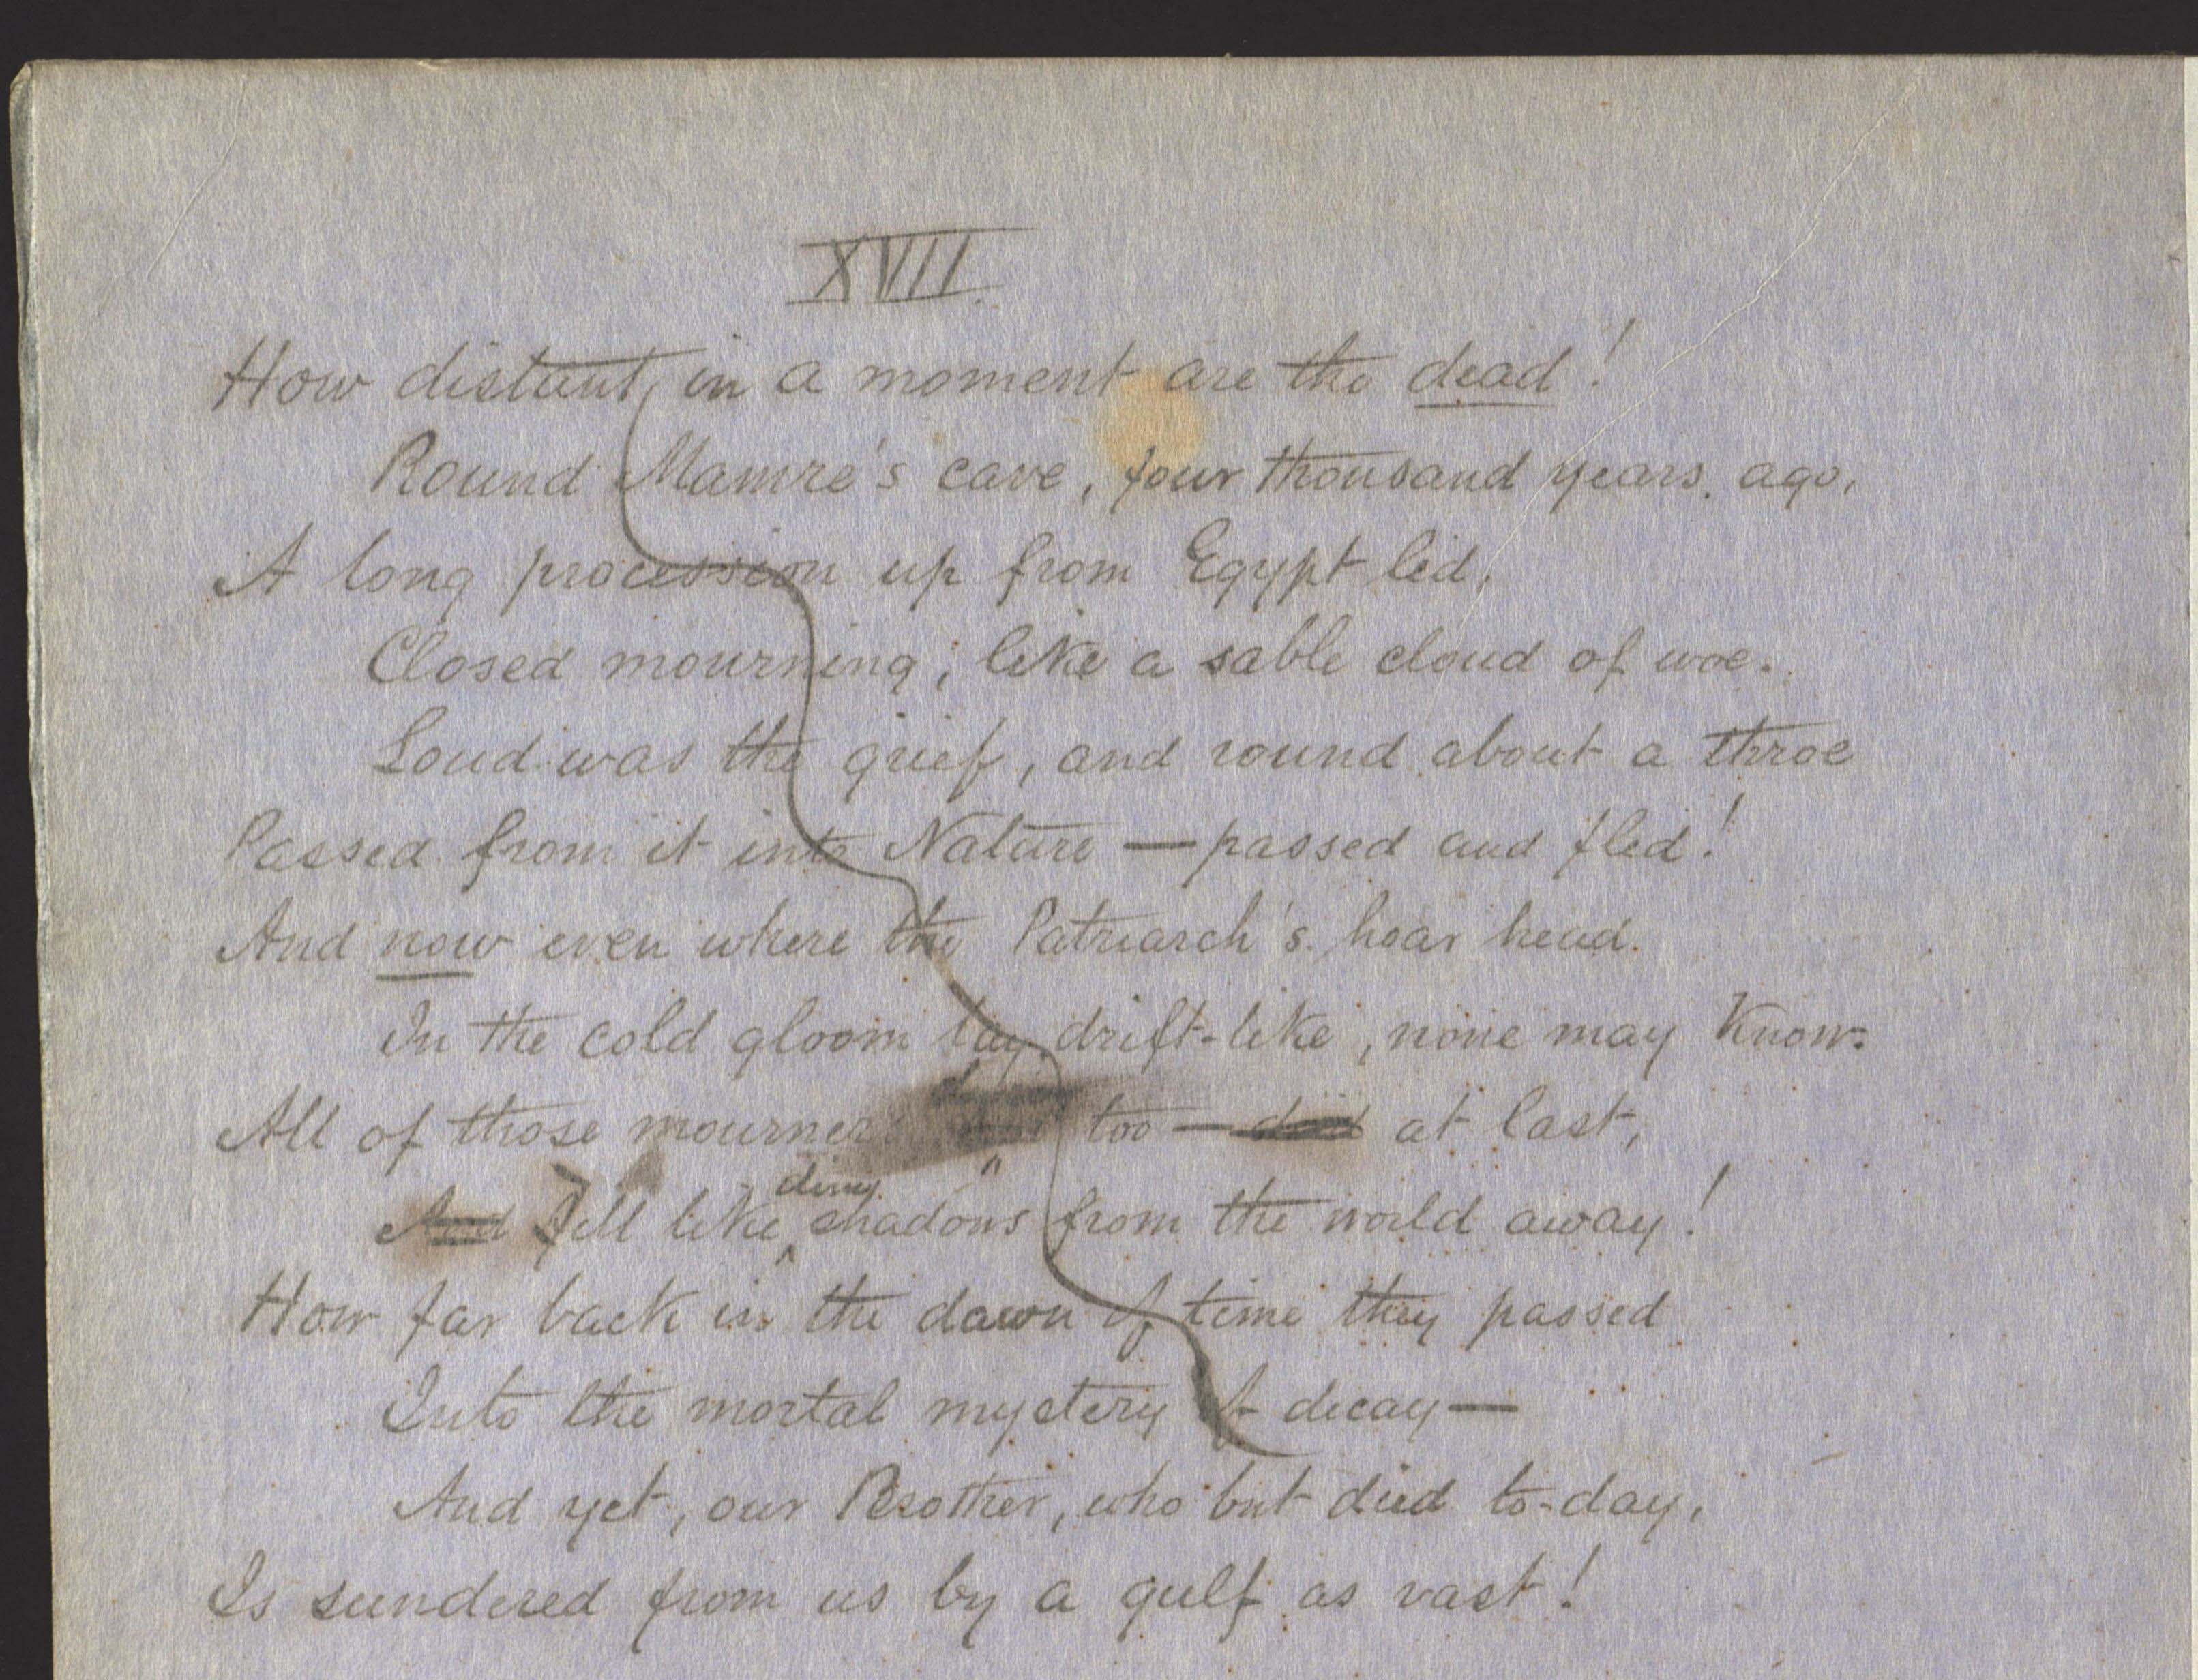 XVII.
How distant, in a moment are the dead!
Round Mamre's cave, four thousand years ago,
A long procession up from Egypt led,
Closed mourning; like a sable cloud of woe.
Loud was the grief, and round about a throe
Passed from it into Nature — passed and fled!
And now even where the Patriarch's hoar head.
In the cold gloom lay, drift-like, none may know:
All of those mourners too — at last,
And Fell like dim shadows from the world away!
How far back in the dawn of time they passed
Into the mortal mystery of decay —
And yet, our Brother, who but died to-day,
Is sundered from us by a gulf as vast!